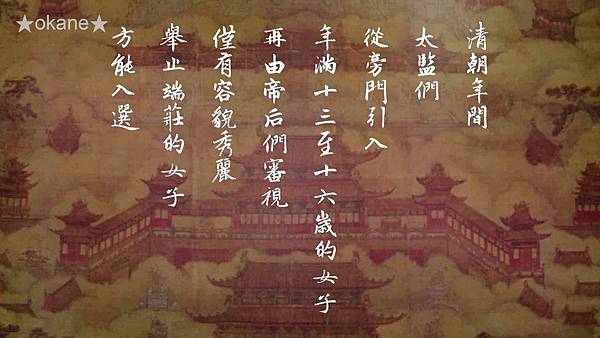 ★okane★
清朝年間
太監們
從旁門引入
年滿十三至十六歲的女子
再由帝后們審視
僅有容貌秀麗
舉止端莊的女子
方能入選